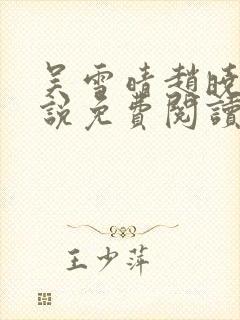 吴雪晴趙曉
說免費閱讀
王少萍